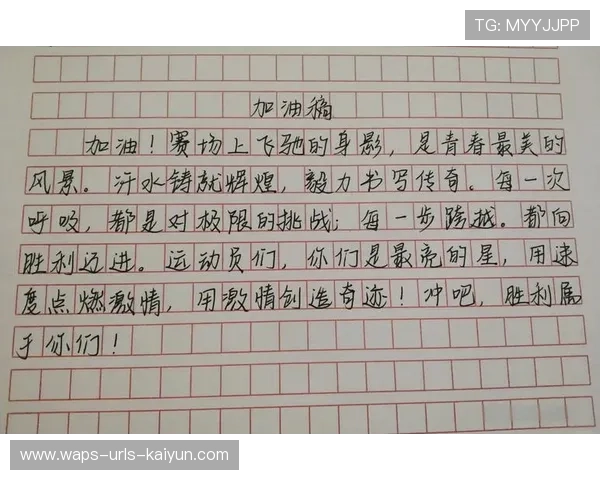 TG: MYYJJPP
加油稿
加油！赛场上飞驰的身影，是青春最美的
风景。汗水铸就辉煌，毅力书写传奇。每一次
呼吸，都是对极限的挑战；每一步跨越。都向
胜利迈进。运动员们，你们是最亮的星，用速
度点燃激情，用激情创造奇迹！冲吧，胜利属
于你们！
www.waps-urls-kaiyun.com